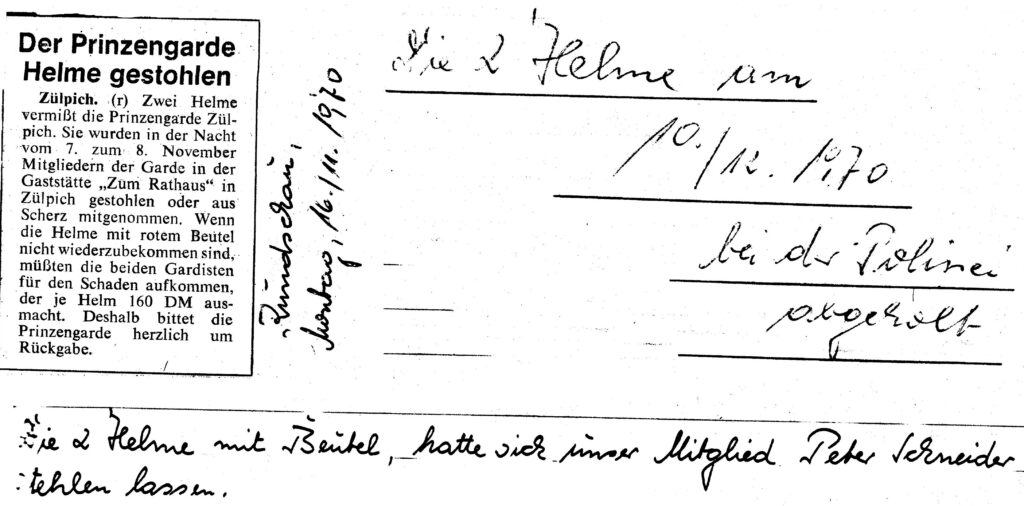 Der Prinzengarde
Helme gestohlen
Zülpich. (r) Zwei Helme
vermißt die Prinzengarde Zül-
pich. Sie wurden in der Nacht
vom 7. zum 8. November
Mitgliedern der Garde in der
Gaststätte „Zum Rathaus“ in
Zülpich gestohlen oder aus
Scherz mitgenommen. Wenn
die Helme mit rotem Beutel
nicht wiederzubekommen sind,
müßten die beiden Gardisten
für den Schaden aufkommen,
der je Helm 160 DM aus-
macht. Deshalb bittet die
Prinzengarde herzlich um
Rückgabe.
Rundschau,
Montag, 16/11. 1970
Die 2 Helme am
10./12. 1970
bei der Polizei
abgeholt
Die 2 Helme mit Beutel, hatte sich unser Mitglied Peter Schneider
stehlen lassen.